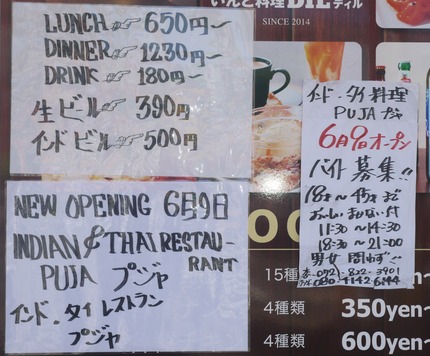 LUNCH☞650円〜
DINNER☞1230円〜
DRINK☞180円〜
生ビール☞390円
インドビール☞500円
NEW OPENING 6月9日
INDIAN & THAI RESTAU-
RANT
PUJA プジャ
インド.タイレストラン
プジャ
いんど料理 DIL ディル
SINCE 2014
インド.タイ料理
PUJA プジャ
6月9日オープン
バイト募集!!
18才〜45才まで
11:30〜14:30
18:30〜21:00
男女問わず!!
15種
4種類 350yen〜
4種類 600yen〜